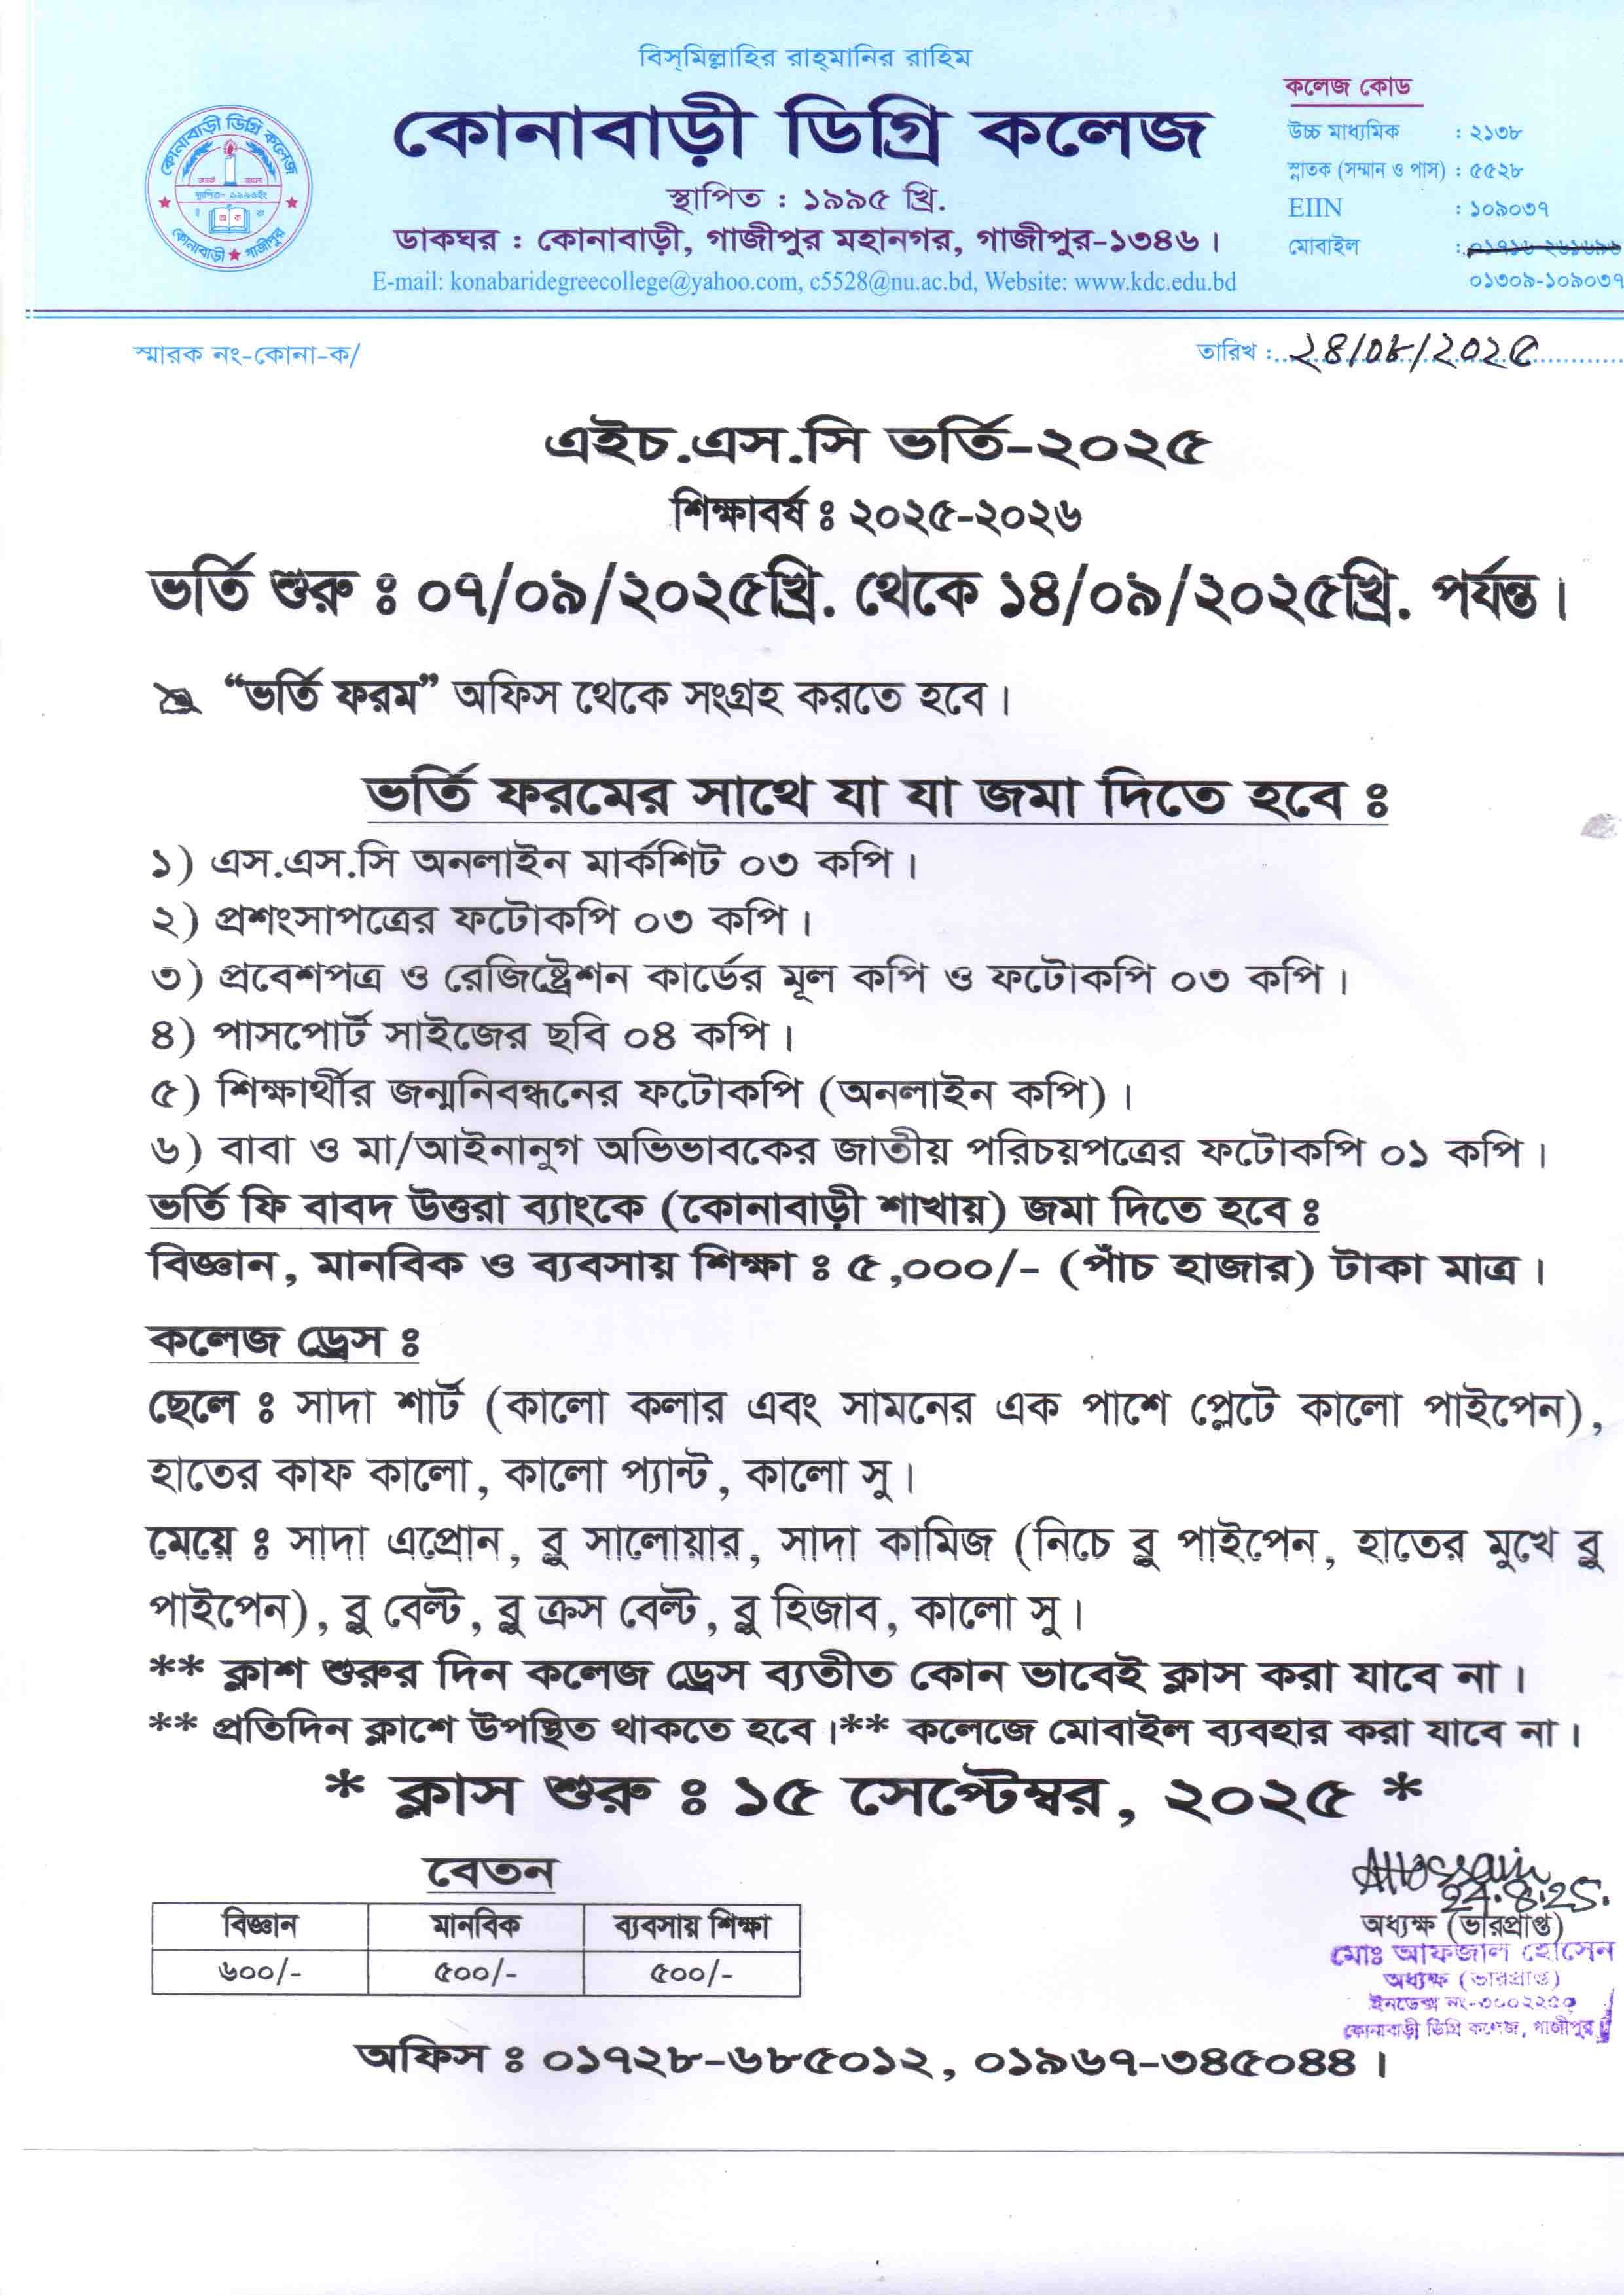 বিস্‌মিল্লাহির রাহ্‌মানির রাহিম
কোনাবাড়ী ডিগ্রি কলেজ
স্থাপিত : ১৯৯৫ খ্রি.
ডাকঘর : কোনাবাড়ী, গাজীপুর মহানগর, গাজীপুর-১৩৪৬।
E-mail: konabaridegreecollege@yahoo.com, c5528@nu.ac.bd, Website: www.kdc.edu.bd
কোনাবাড়ী ডিগ্রি কলেজ
স্থাপিত- ১৯৯৫ইং
কোনাবাড়ী ★ গাজীপুর
কলেজ কোড
উচ্চ মাধ্যমিক : ২১৩৮
স্নাতক (সম্মান ও পাস) : ৫৫২৮
EIIN : ১০৯০৩৭
মোবাইল :
০১৩০৯-১০৯০৩৭
স্মারক নং-কোনা-ক/
তারিখ : ২৪/০৮/২০২৫
এইচ.এস.সি ভর্তি-২০২৫
শিক্ষাবর্ষ ঃ ২০২৫-২০২৬
ভর্তি শুরু ঃ ০৭/০৯/২০২৫খ্রি. থেকে ১৪/০৯/২০২৫খ্রি. পর্যন্ত।
“ভর্তি ফরম” অফিস থেকে সংগ্রহ করতে হবে।
ভর্তি ফরমের সাথে যা যা জমা দিতে হবে ঃ
১) এস.এস.সি অনলাইন মার্কশিট ০৩ কপি।
২) প্রশংসাপত্রের ফটোকপি ০৩ কপি।
৩) প্রবেশপত্র ও রেজিষ্ট্রেশন কার্ডের মূল কপি ও ফটোকপি ০৩ কপি।
৪) পাসপোর্ট সাইজের ছবি ০৪ কপি।
৫) শিক্ষার্থীর জন্মনিবন্ধনের ফটোকপি (অনলাইন কপি)।
৬) বাবা ও মা/আইনানুগ অভিভাবকের জাতীয় পরিচয়পত্রের ফটোকপি ০১ কপি।
ভর্তি ফি বাবদ উত্তরা ব্যাংকে (কোনাবাড়ী শাখায়) জমা দিতে হবে ঃ
বিজ্ঞান, মানবিক ও ব্যবসায় শিক্ষা ঃ ৫,০০০/- (পাঁচ হাজার) টাকা মাত্র।
কলেজ ড্রেস ঃ
ছেলে ঃ সাদা শার্ট (কালো কলার এবং সামনের এক পাশে প্লেটে কালো পাইপেন),
হাতের কাফ কালো, কালো প্যান্ট, কালো সু।
মেয়ে ঃ সাদা এপ্রোন, ব্লু সালোয়ার, সাদা কামিজ (নিচে ব্লু পাইপেন, হাতের মুখে ব্লু
পাইপেন), ব্লু বেল্ট, ব্লু ক্রস বেল্ট, ব্লু হিজাব, কালো সু।
** ক্লাশ শুরুর দিন কলেজ ড্রেস ব্যতীত কোন ভাবেই ক্লাস করা যাবে না।
** প্রতিদিন ক্লাশে উপস্থিত থাকতে হবে।** কলেজে মোবাইল ব্যবহার করা যাবে না।
* ক্লাস শুরু ঃ ১৫ সেপ্টেম্বর, ২০২৫ *
বেতন
বিজ্ঞান মানবিক ব্যবসায় শিক্ষা
৬০০/- ৫০০/- ৫০০/-
AHossain
24.8.25.
অধ্যক্ষ (ভারপ্রাপ্ত)
মোঃ আফজাল হোসেন
অধ্যক্ষ (ভারপ্রাপ্ত)
ইনডেক্স নং-৩০০২২৫০
কোনাবাড়ী ডিগ্রি কলেজ, গাজীপুর
অফিস ঃ ০১৭২৮-৬৮৫০১২, ০১৯৬৭-৩৪৫০৪৪।